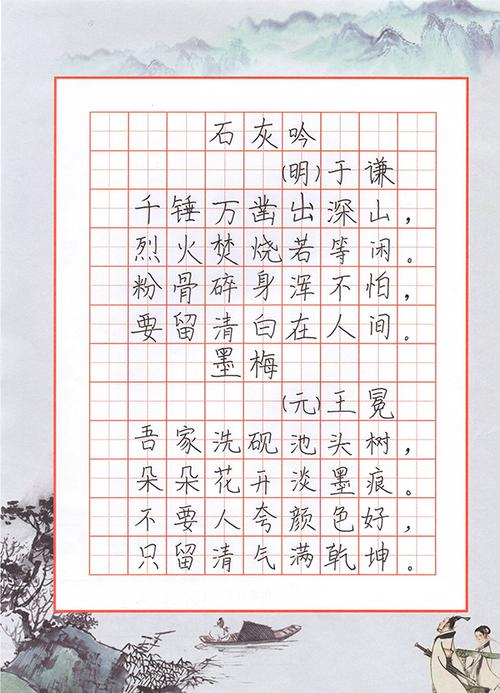 石灰吟
(明)于谦
千锤万凿出深山，
烈火焚烧若等闲。
粉骨碎身浑不怕，
要留清白在人间。
墨梅
(元)王冕
吾家洗砚池头树，
朵朵花开淡墨痕。
不要人夸颜色好，
只留清气满乾坤。